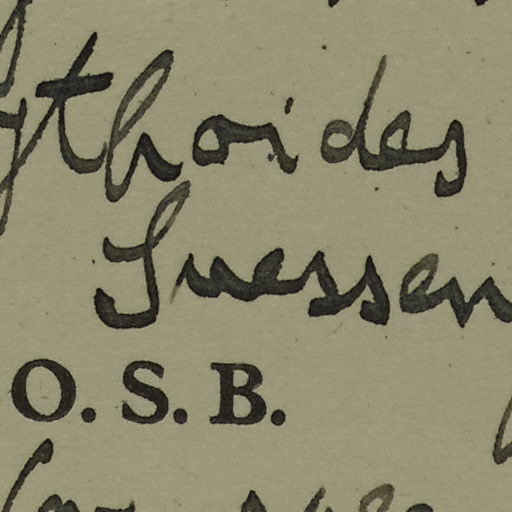 ythoides
Suessen
O. S. B.